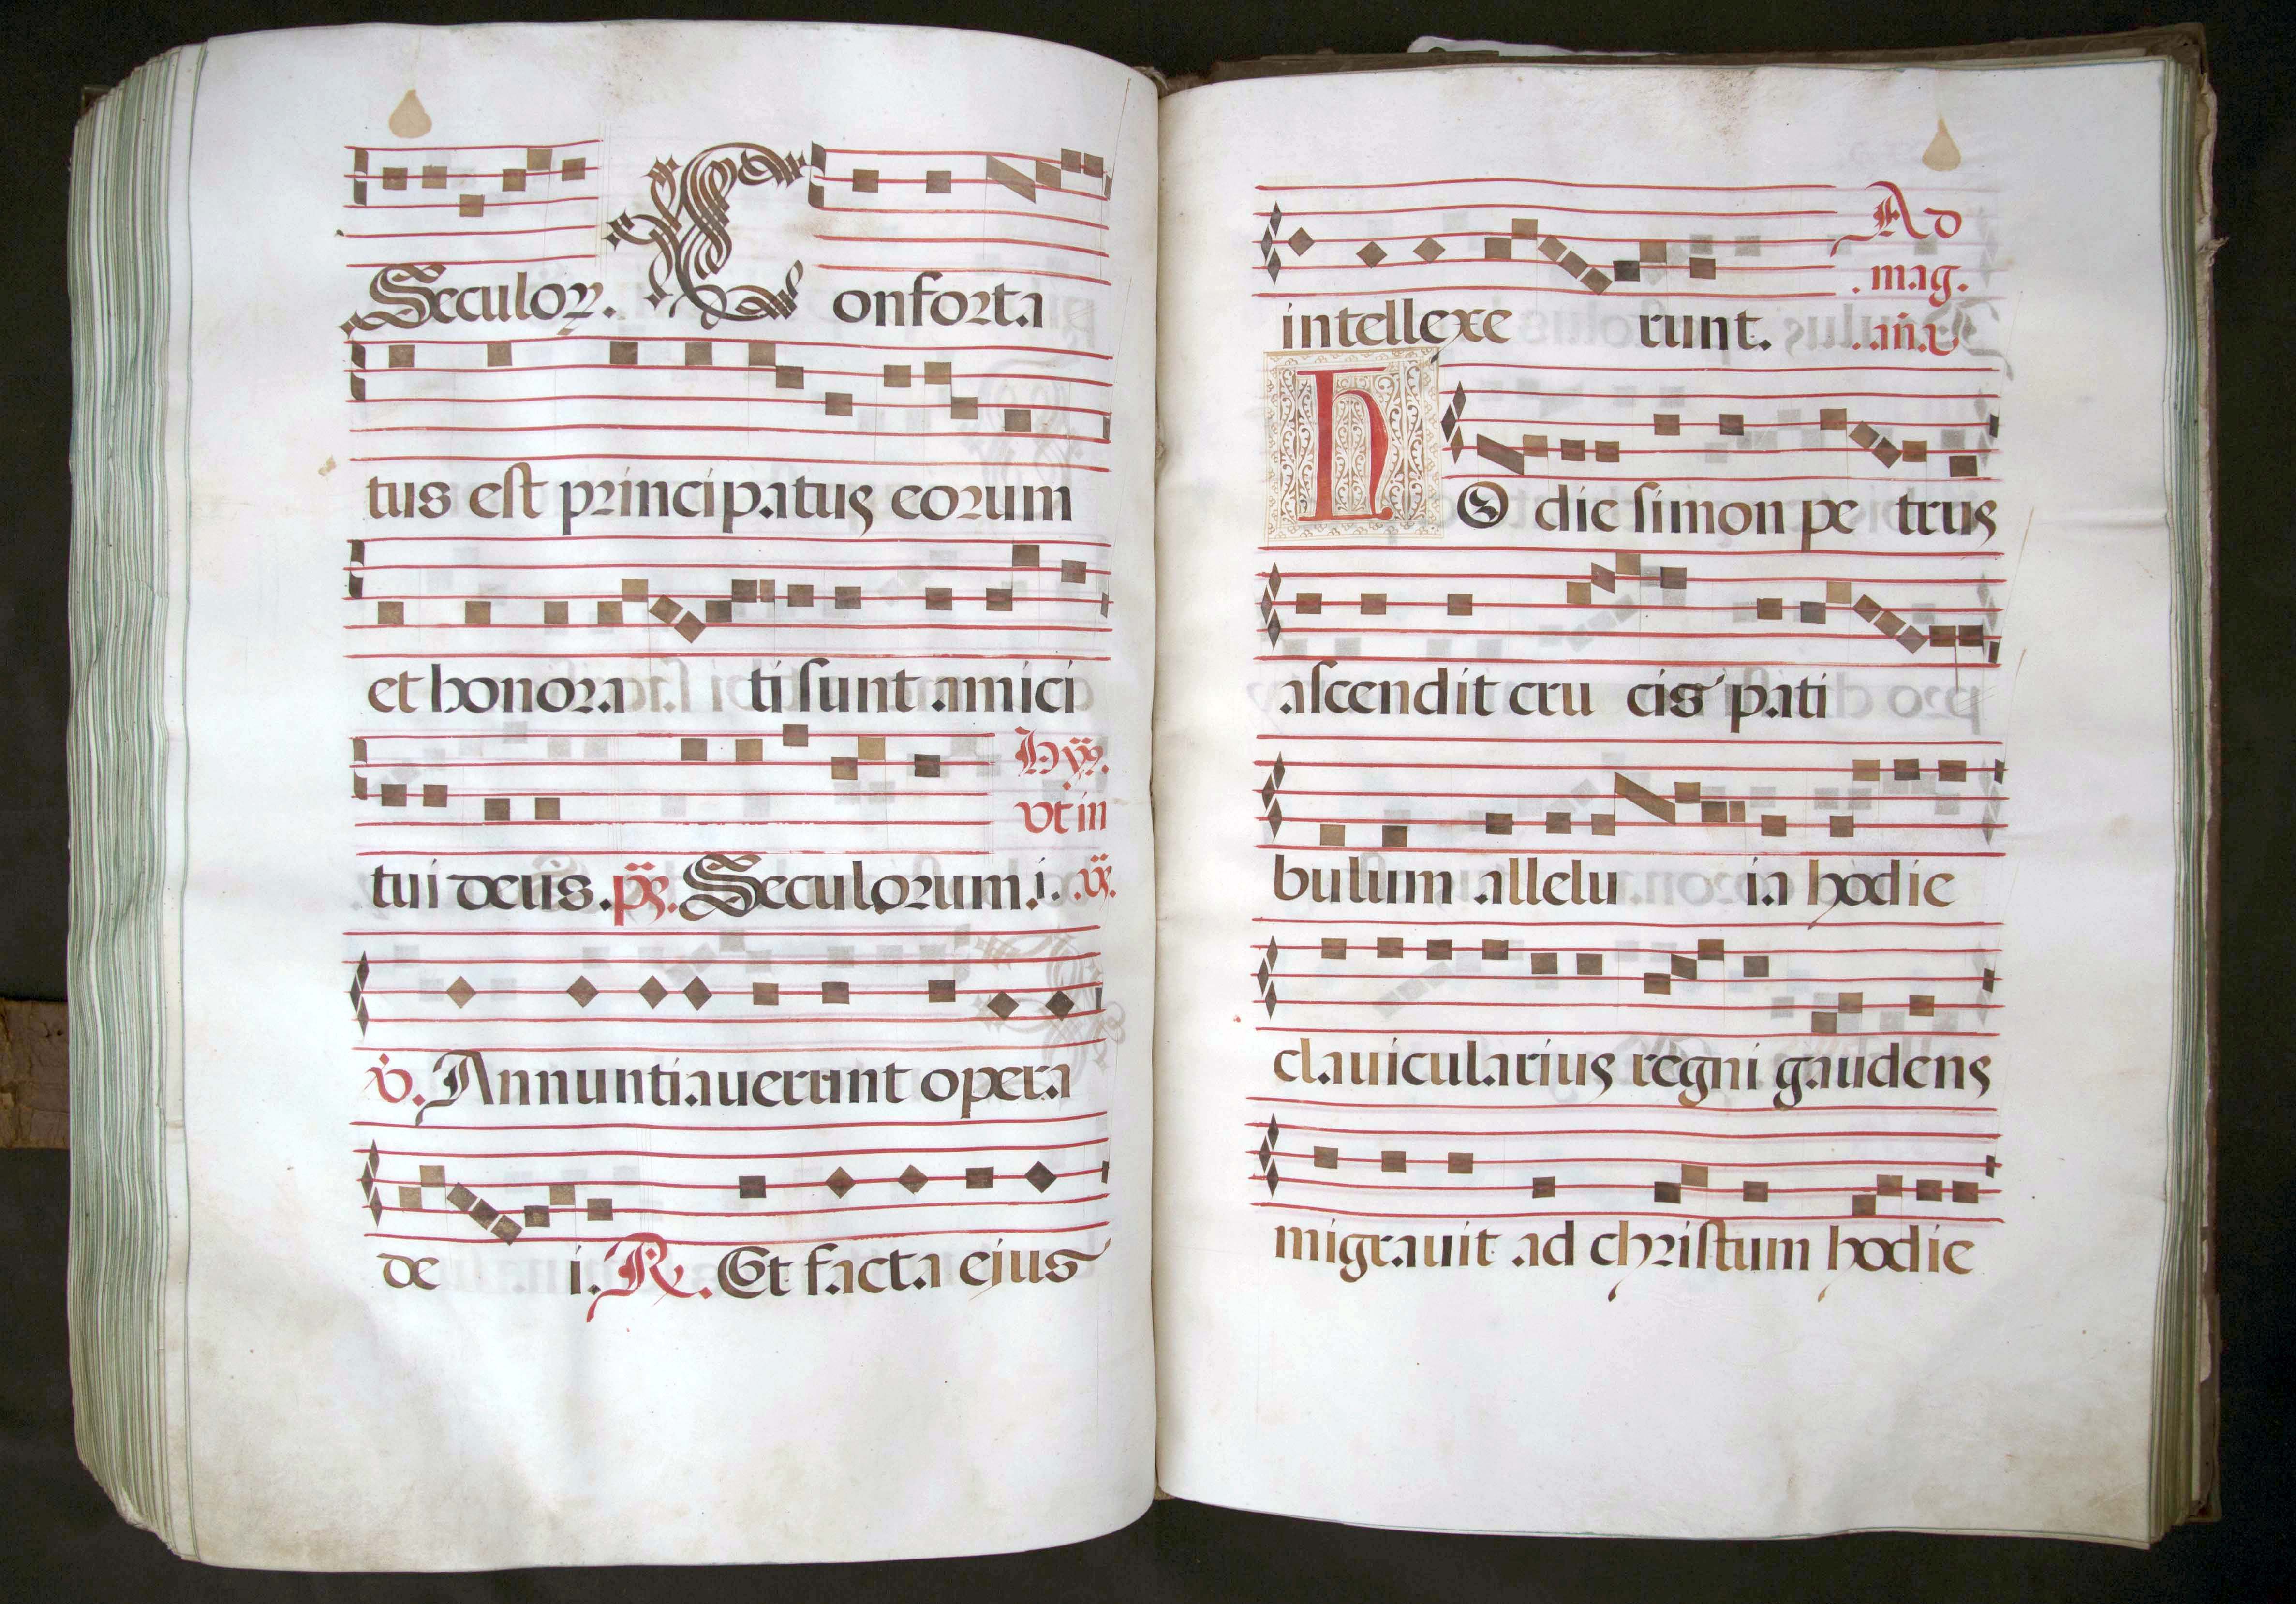 Seculoꝝ. Conforta
tus est principatus eorum
et honora ti sunt amici
Hỹ.
vt in
tui deus. ps. Seculorum. i. v̈.
v. Annuntiauerunt opera
de i. R. Et facta ejus
Ad
mag.
intellexe runt. .añ.
HO die simon pe trus
ascendit cru cis pati
bulum allelu ia hodie
clauicularius regni gaudens
migrauit ad christum hodie